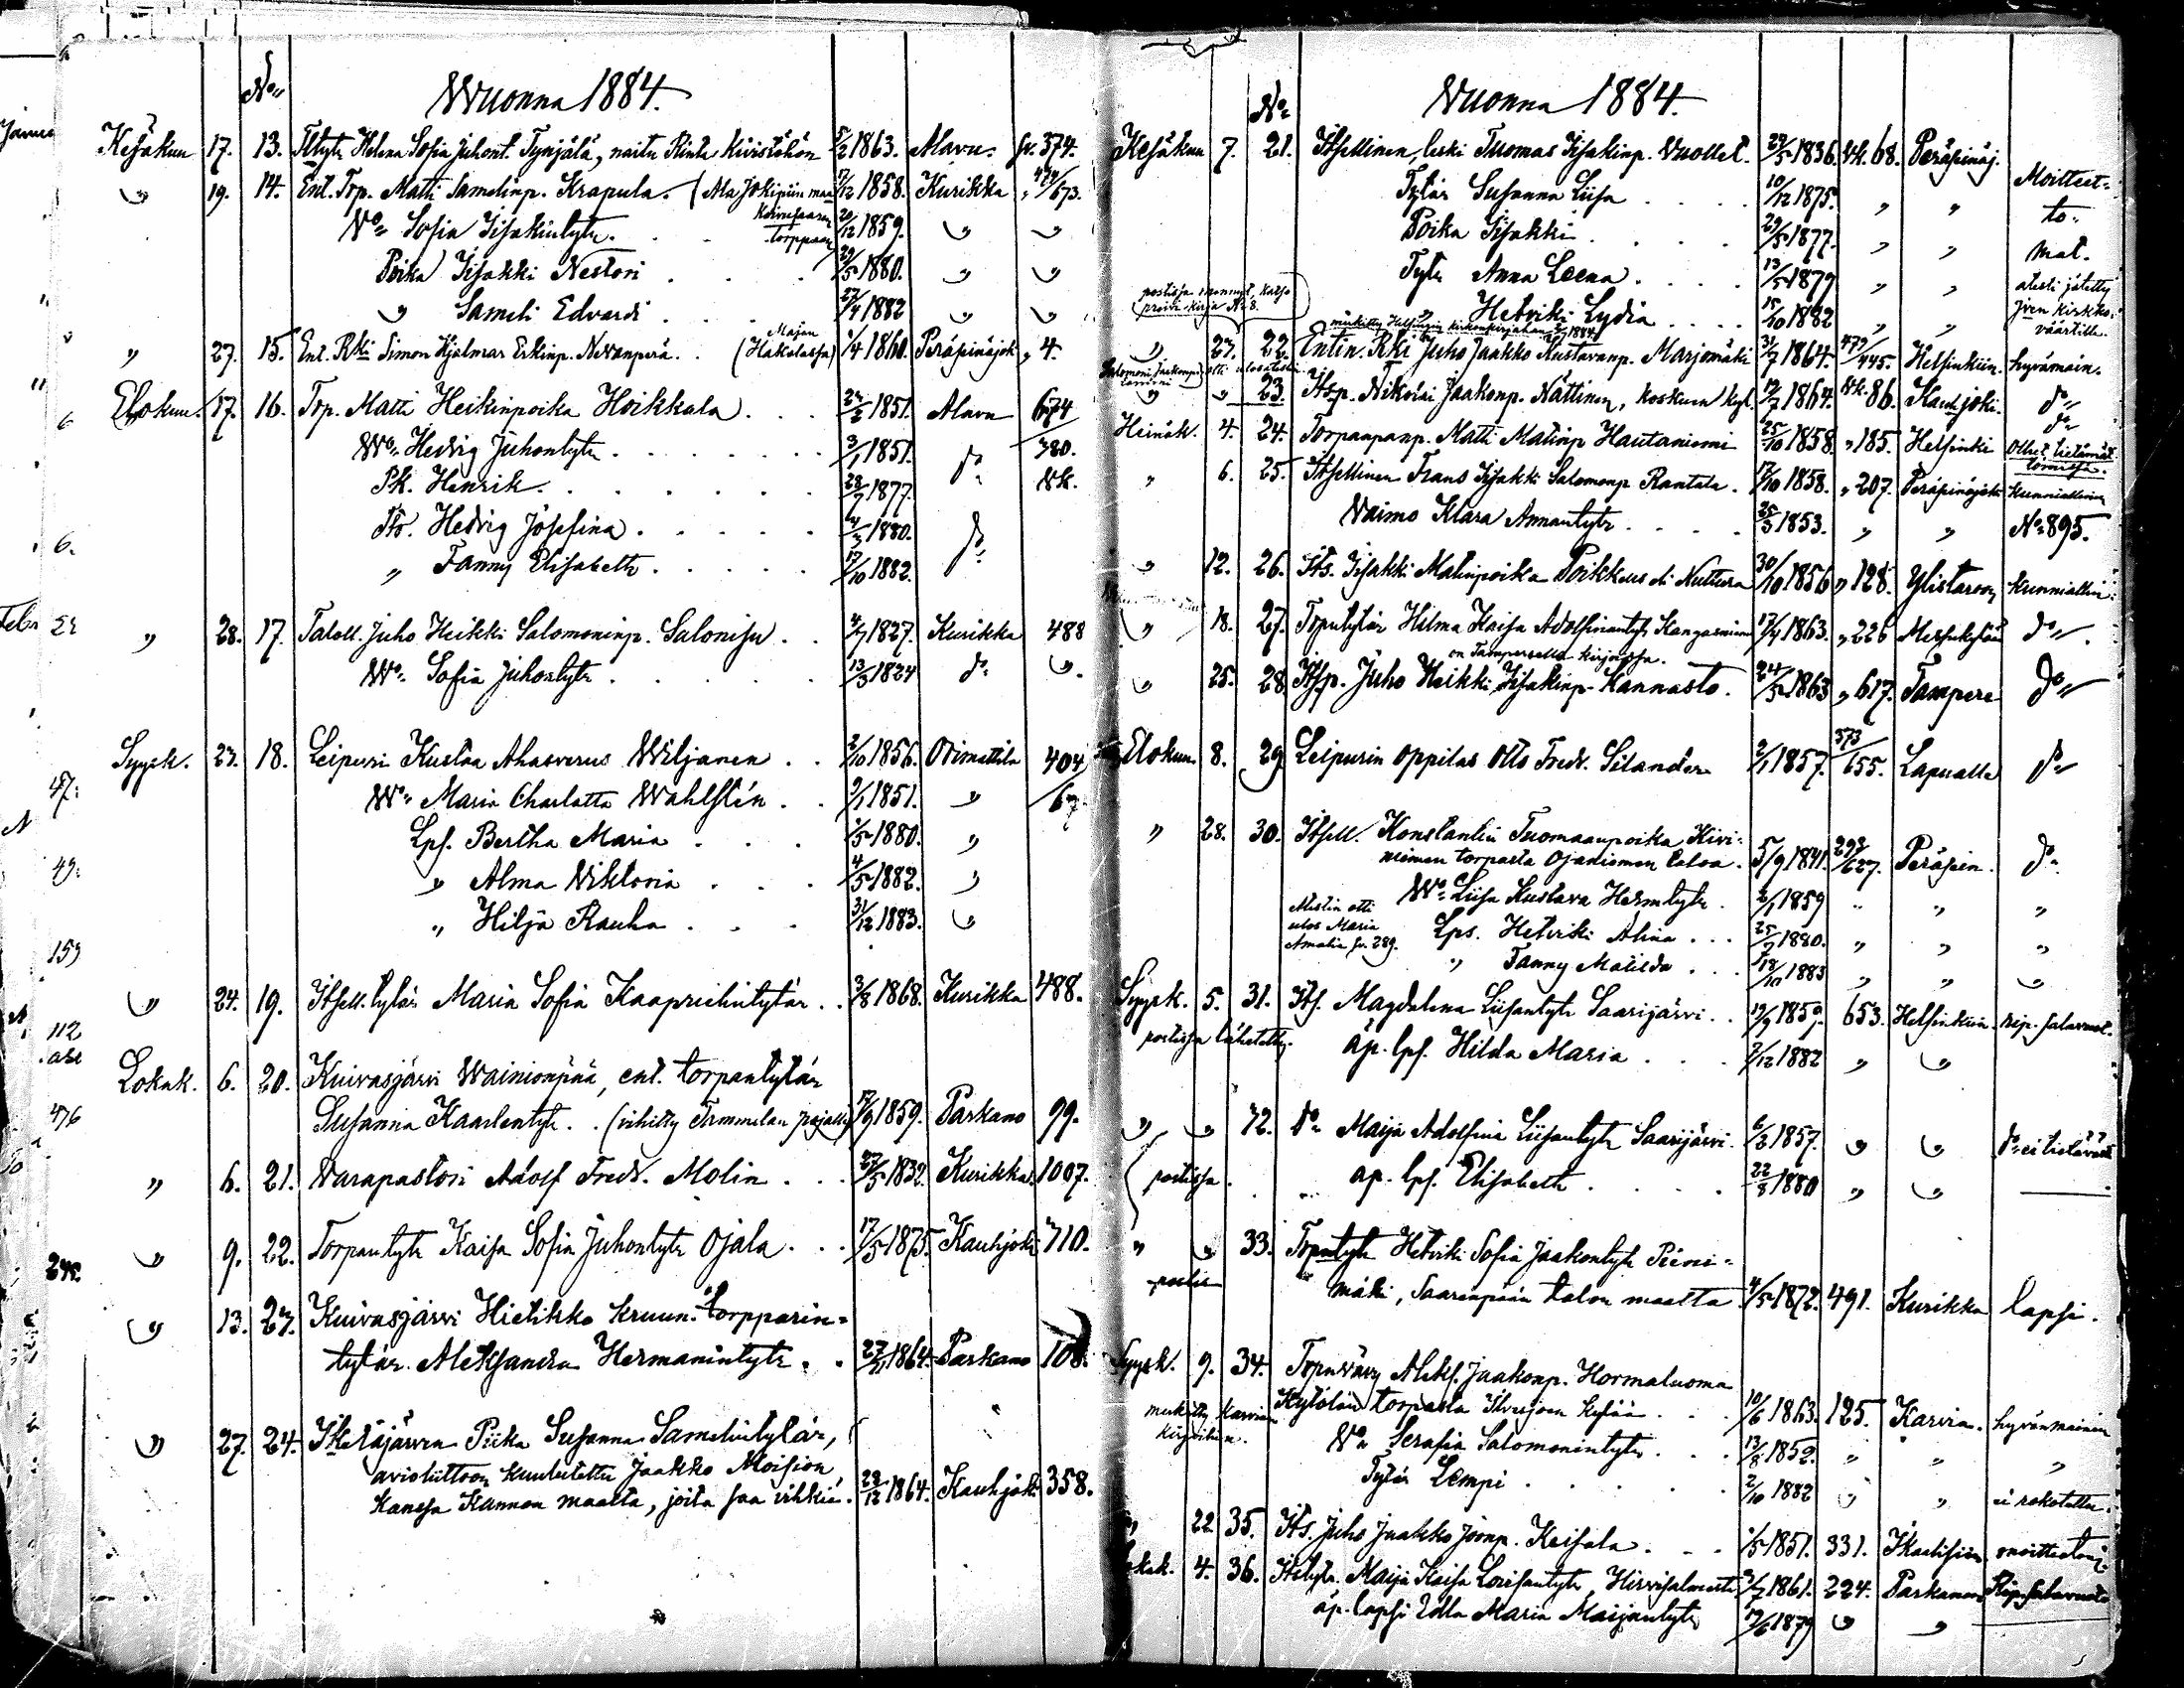 No
Wuonna 1884.
Kesäkuu 17. 13. Ittytr Helena Sofia Juhont. Tynjälä, naitu Rinta Kivistöhön 5/2 1863. Alavu. sv. 374.
" 19. 14. Ent. Trp. Matti Samelinp. Krapula. (Ala Jokipiin maa 17/12 1858. Kurikka " 424/673.
Wo Sofia Iisakintytr. Koivusaaren torppaan 20/12 1859. " "
Poika Iisakki Nestori 29/5 1880. " "
" Sameli Edvardi 27/4 1882 " "
" 27. 15. Ent. Rki Simon Hjalmar Erkinp. Nevanperä. (Majan Hakolassa) 1/4 1860. Peräseinäjok. " 4.
Elokuu. 17. 16. Trp. Matti Heikinpoika Hoikkala 24/2 1851. Alavu 674/380.
Wo Hedvig Juhontytr. 3/1 1851. do
Pk. Henrik. 28/7 1877. Rk.
Ttr. Hedvig Josefina. 4/3 1880. do
" Fanny Elisabeth 17/10 1882.
" 28. 17. Taloll. Juho Heikki Salomoninp. Salonisu 3/7 1827. Kurikka 488
Wo Sofia Juhontytr 13/3 1824 do "
Syysk. 23. 18. Leipuri Kustaa Ahasverus Wiljanen 2/10 1856. Orimattila 404/67
Wo Maria Charlotta Wahlstén 9/1 1851. "
Lps. Bertha Maria 1/5 1880. "
" Alma Viktoria 4/5 1882. "
" Hilja Rauha 31/12 1883. "
" 24. 19. Itsell. tytär Maria Sofia Kaaprielintytär 3/8 1868. Kurikka 488.
Lokak. 6. 20. Kuivasjärvi Wainionpää, ent. torpantytär
Susanna Kaarlentytr. (vihitty Tammelan pojalle) 17/9 1859. Parkano 99.
" 6. 21. Varapastori Adolf Fredr. Molin 27/5 1832. Kurikka. 1007.
" 9. 22. Torpantytr Kaisa Sofia Juhontytr Ojala 17/5 1875. Kauhjoki 710.
" 13. 23. Kuivasjärvi Hietikko kruun. torpparin-
tytär. Aleksandra Hermanintytr 27/11 1864. Parkano 108.
" 27. 24. Itetäjärven Piika Susanna Samelintytär,
avioliittoon kuulutettu Jaakko Moision
kanssa Kannon maalta, joita saa vihkiä. 28/12 1864. Kauhjoki 358.
No
Wuonna 1884.
Kesäkuu 7. 21. Itsellinen, leski Tuomas Iisakinp. Vuollet. 29/5 1836. Rk. 68. Peräseinäj.
Tytär Susanna Liisa 10/12 1875. " " Moitteet-
Poika Iisakki 29/5 1877. " " to-
Tytr Anna Leena 13/5 1879 " " mat.
postissa mennyt, katso
" Hetviki Lydia 15/10 1882 " " atesti jätetty
väärtille.
merkitty Helsingin kirkonkirjahan 1884
" 27. 22. Entin. Rki Juho Jaakko Kustavanp. Marjomäki 31/7 1864. 472/445. Helsinkiin. hyvämain.
" " 23. Its.p. Nikolai Jaakonp. Nättinen, koskuen kyl. 12/7 1864. Rk. 86. Kauhjoki. do
Heinäk. 4. 24. Torpanpanp. Matti Matinp Hautaniemi 25/10 1858. " 185. Helsinki
" 6. 25. Itsellinen Frans Iisakki Salomonp Rantala 17/10 1858. " 207. Peräseinäjoki kunniallinen
Vaimo Klara Annantytr 25/3 1853. " " No 895.
" 12. 26. Its. Iisakki Matinpoika Poikkeus eli Nuttura 30/10 1856 " 128. Ylistaroon kunniallin.
" 18. 27. Toputytär Hilma Kaisa Adolfinantytr Kangasniemi 17/4 1863. " 226 Messukylään do
on Tampereella kirjassa.
" 25. 28. Itsp. Juho Heikki Iisakinp. Kannasto. 24/5 1863 " 617. Tampere do
Elokuu 8. 29 Leipurin oppilas Otto Fredr. Silander 2/1 1857. 573/655. Lapualle do
" 28. 30. Itsell. Konstantin Tuomaanpoika Kivi-
niemen torpasta Ojaniemen taloa. 5/9 1841. 292/627. Peräsein. do
Wo Liisa Kustava Hermtytr. 2/1 1859 " " "
Atestin otti ulos Maria Amalia sv. 289.
Lps. Hetviki Alina 25/7 1880. " " "
" Fanny Matilda 18/10 1883 " " "
Syysk. 5. 31. Its. Magdalena Liisantytr Saarijärvi 19/9 1859. 653. Helsinkiin.
postissa lähetetty. äp. lps. Hilda Maria 7/12 1882 " "
" " 72. do Maija Adolfina Liisantytr Saarijärvi 6/3 1857. " "
postissa. äp. lps. Elisabeth 22/8 1880 " "
" " 33. Toputytr Hetviki Sofia Jaakontytr Pieni-
mäki, Saarenpään talon maalta 4/5 1872. 491. Kurikka lapsi.
Syysk. 9. 34. Topuvävy Aleks. Jaakonp. Hormaluoma
merkitty Karvian kirjoihin. Kytölän torpasta Itvesjoen kylää 10/6 1863. 125. Karvia. hyvänmainen
Vo Serafia Salomonintytr 13/8 1859. " " "
Tytär Lempi 2/10 1882 " " ei rokotettu.
" 22. 35. Its. Juho Jaakko Joonp. Keisala 1/5 1851. 331. Ikaalisiin moitteeton
Lokak. 4. 36. Ittytr. Maija Kaisa Loviisantytr, Hirvisalmesta 3/7 1861. 224. Parkanoon
äp. lapsi Edla Maria Maijantytr 19/6 1879 " "